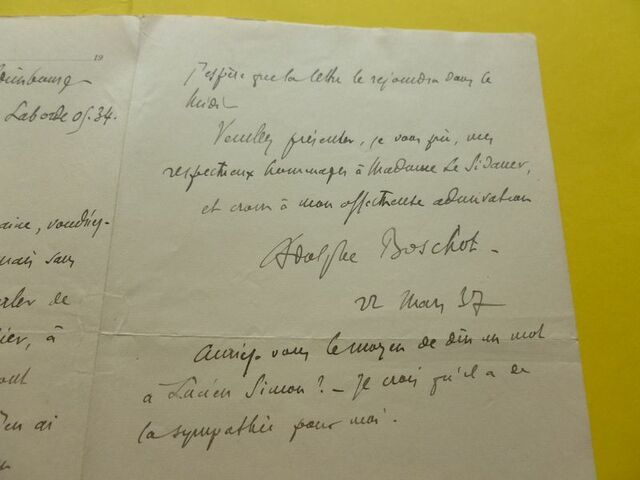 19
Laborde 05.34.
J'espère que la lettre le rejoindra dans le
Midi.
Veuillez présenter, je vous prie, mes
respectueux hommages à Madame Le Sidaner,
et croire à mon affectueuse admiration
Adolphe Boschot -
22 Mars 37
Auriez-vous le moyen de dire un mot
à Lucien Simon? - Je crois qu'il a de
la sympathie pour moi.